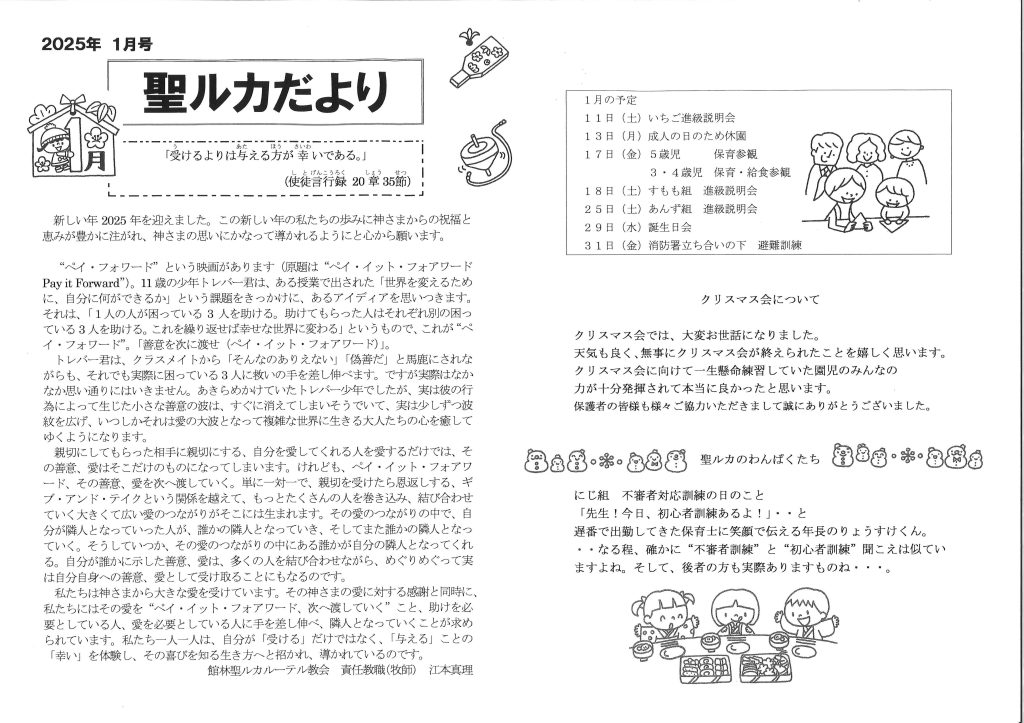 2025年 1月号
聖ルカだより
1月
「受けるよりは与える方が幸いである。」
(使徒言行録 20章35節)
新しい年 2025 年を迎えました。この新しい年の私たちの歩みに神さまからの祝福と
恵みが豊かに注がれ、神さまの思いにかなって導かれるようにと心から願います。
“ペイ・フォワード” という映画があります（原題は “ペイ・イット・フォアワード
Pay it Forward”）。11 歳の少年トレバー君は、ある授業で出された「世界を変えるため
に、自分に何ができるか」という課題をきっかけに、あるアイディアを思いつきます。
それは、「1 人の人が困っている 3 人を助ける。助けてもらった人はそれぞれ別の困っ
ている 3 人を助ける。これを繰り返せば幸せな世界に変わる」というもので、これが “ペ
イ・フォワード”。「善意を次に渡せ（ペイ・イット・フォアワード）」。
トレバー君は、クラスメイトから「そんなのありえない」「偽善だ」と馬鹿にされな
がらも、それでも実際に困っている 3 人に救いの手を差し伸べます。ですが実際はなか
なか思い通りにはいきません。あきらめかけていたトレバー少年でしたが、実は彼の行
為によって生じた小さな善意の波は、すぐに消えてしまいそうでいて、実は少しずつ波
紋を広げ、いつしかそれは愛の大波となって複雑な世界に生きる大人たちの心を癒して
ゆくようになります。
親切にしてもらった相手に親切にする、自分を愛してくれる人を愛するだけでは、そ
の善意、愛はそこだけのものになってしまいます。けれども、ペイ・イット・フォアワ
ード、その善意、愛を次へ渡していく。単に一対一で、親切を受けたら恩返しする、ギ
ブ・アンド・テイクという関係を越えて、もっとたくさんの人を巻き込み、結び合わせ
ていく大きくて広い愛のつながりがそこには生まれます。その愛のつながりの中で、自
分が隣人となっていった人が、誰かの隣人となっていき、そしてまた誰かの隣人となっ
ていく。そうしていつか、その愛のつながりの中にある誰かが自分の隣人となってくれ
る。自分が誰かに示した善意、愛は、多くの人を結び合わせながら、めぐりめぐって実
は自分自身への善意、愛として受け取ることにもなるのです。
私たちは神さまから大きな愛を受けています。その神さまの愛に対する感謝と同時に、
私たちにはその愛を “ペイ・イット・フォアワード、次へ渡していく” こと、助けを必
要としている人、愛を必要としている人に手を差し伸べ、隣人となっていくことが求め
られています。私たち一人一人は、自分が「受ける」だけではなく、「与える」ことの
「幸い」を体験し、その喜びを知る生き方へと招かれ、導かれているのです。
館林聖ルカルーテル教会　責任教職(牧師)　江本真理
1月の予定
１１日（土）いちご進級説明会
１３日（月）成人の日のため休園
１７日（金）５歳児　　保育参観
３・４歳児　保育・給食参観
１８日（土）すもも組　進級説明会
２５日（土）あんず組　進級説明会
２９日（水）誕生日会
３１日（金）消防署立ち合いの下　避難訓練
クリスマス会について
クリスマス会では、大変お世話になりました。
天気も良く、無事にクリスマス会が終えられたことを嬉しく思います。
クリスマス会に向けて一生懸命練習していた園児のみんなの
力が十分発揮されて本当に良かったと思います。
保護者の皆様も様々ご協力いただきまして誠にありがとうございました。
聖ルカのわんぱくたち
にじ組　不審者対応訓練の日のこと
「先生！今日、初心者訓練あるよ！」・・と
遅番で出勤してきた保育士に笑顔で伝える年長のりょうすけくん。
・・なる程、確かに “不審者訓練” と “初心者訓練” 聞こえは似てい
ますよね。そして、後者の方も実際ありますものね・・・。